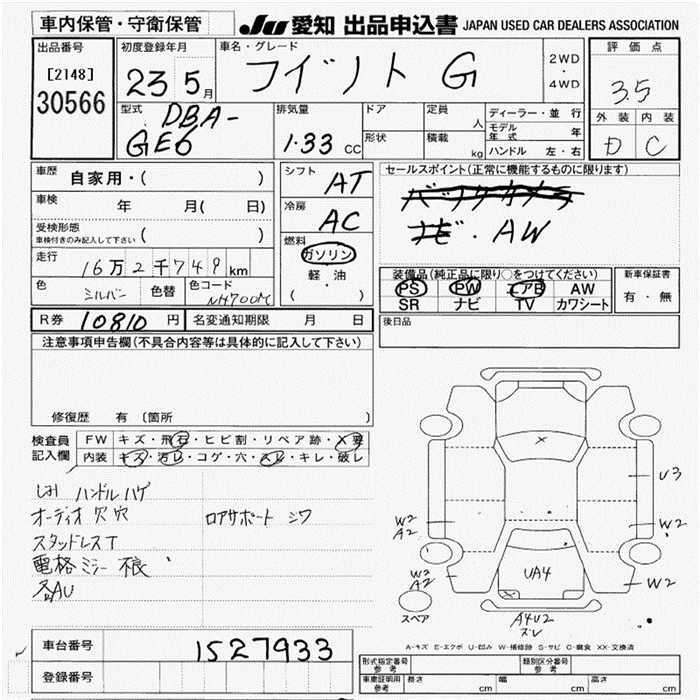 車内保管・守衛保管
JU 愛知 出品申込書 JAPAN USED CAR DEALERS ASSOCIATION
出品番号
[2148]
30566
初度登録年月
23 5月
車名・グレード
G
2WD
・
4WD
評価点
3.5
外装 内装
D C
型式
DBA-
GE6
排気量
1.33 cc
ドア
形状
定員 人
積載 kg
ディーラー・並行
モデル年式 年
ハンドル 左・右
車歴 自家用・( )
車検 年 月( 日)
受検形態
車検付きのみ記入して下さい ( )
走行 16万2千749km
色 シルバー 色替 色コード NH700M
シフト AT
冷房 AC
燃料
ガソリン
軽・油
( ・ )
セールスポイント(正常に機能するものに限ります)
・AW
装備品(純正品に限り○をつけてください)
PS PW エアB AW
SR ナビ TV カワシート
新車保証書
有・無
R券 10810 円 名変通知期限 月 日
後日品
注意事項申告欄(不具合内容等は具体的に記入して下さい)
修復歴 有 〔箇所
検査員
記入欄
FW キズ・飛石・ヒビ割・リペア跡・X要
内装 キズ・汚レ・コゲ・穴・スレ・キレ・破レ
シミ ハンドルハゲ
オーディオ欠 穴 ロアサポート シワ
スタッドレスT
電格ミラー 不良
各AU
U3
W2
A2
W2
W2
A2
W2
UA4
スペア
A4U2
ズレ
A-キズ E-エクボ U-凹み W-補修跡 S-サビ C-腐食 XX-交換済
車台番号 1527933
登録番号
形式指定番号
参考
類別区分番号
参考
車庫証明用
参考
長さ cm 幅 cm 高さ cm